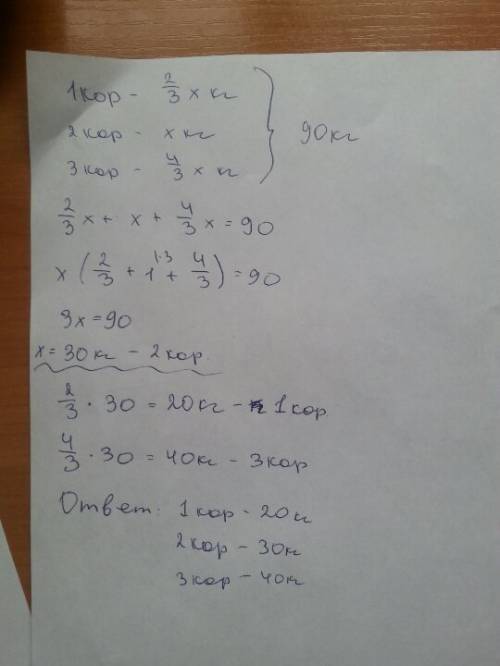 1кор - 2/3 x кг
2кор - x кг } 90кг
3кор - 4/3 x кг
2/3 x + x + 4/3 x = 90
x ( 2/3 + 1 1·3 + 4/3 ) = 90
3x = 90
x = 30кг - 2кор.
2/3 · 30 = 20кг - 1кор
4/3 · 30 = 40кг - 3кор
Ответ: 1кор - 20кг
2кор - 30кг
3кор - 40кг